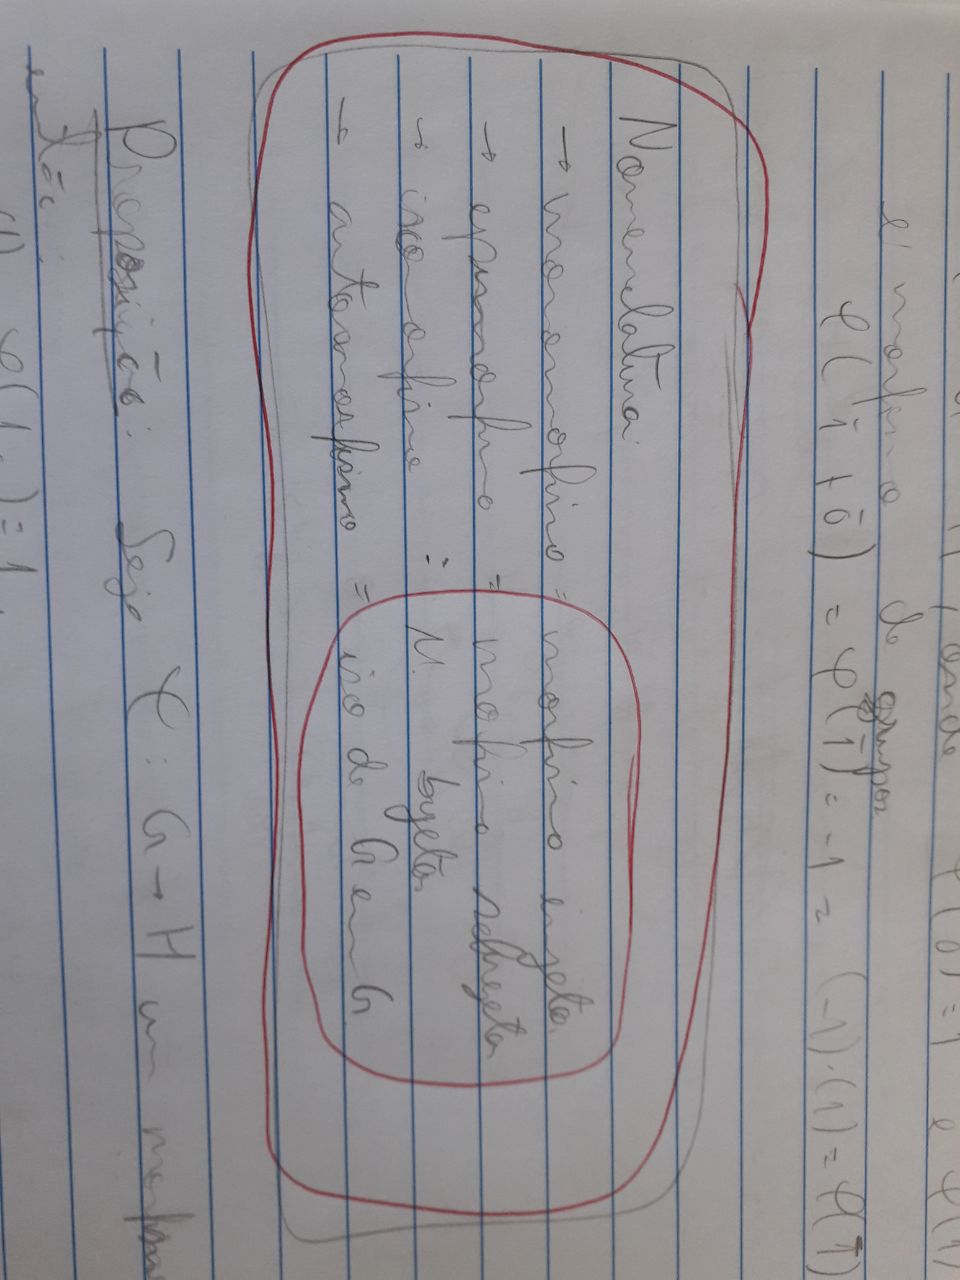 , onde φ(0) = 1 e φ(1)
e' morfismo de grupos
φ(1̄ + 0̄) = φ(1̄) = -1 = (-1).(1) = φ(1̄)
Nomenclatura:
→ monomorfismo = morfismo injetor
→ epimorfismo = morfismo sobrejetor
→ isomorfismo = M. bijetor
→ automorfismo = iso de G em G
Proposição: Seja φ : G → H um morfismo
então:
(1) φ(1 ) = 1